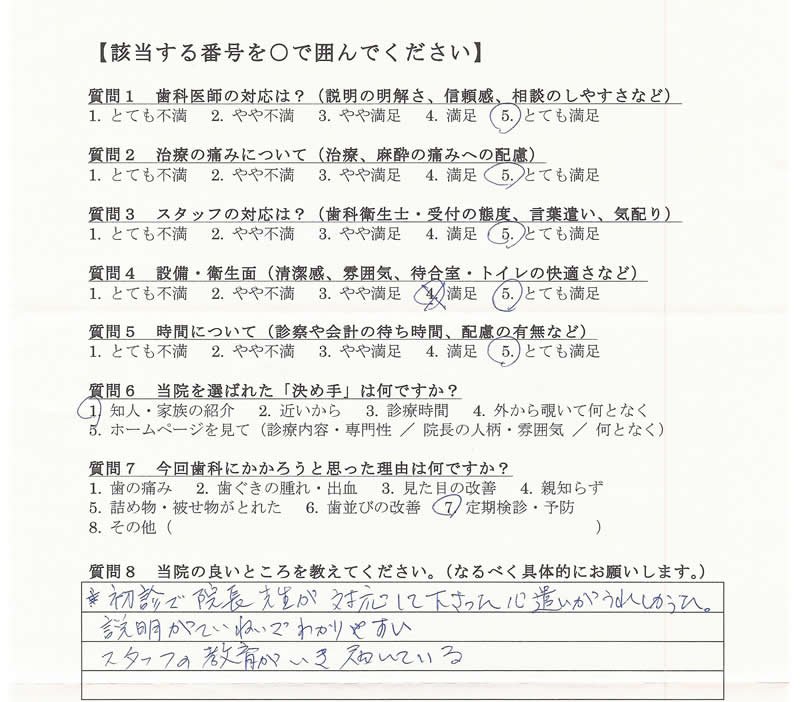 【該当する番号を〇で囲んでください】
質問１　歯科医師の対応は？（説明の明解さ、信頼感、相談のしやすさなど）
1. とても不満　2. やや不満　3. やや満足　4. 満足　5. とても満足
質問２　治療の痛みについて（治療、麻酔の痛みへの配慮）
1. とても不満　2. やや不満　3. やや満足　4. 満足　5. とても満足
質問３　スタッフの対応は？（歯科衛生士・受付の態度、言葉遣い、気配り）
1. とても不満　2. やや不満　3. やや満足　4. 満足　5. とても満足
質問４　設備・衛生面（清潔感、雰囲気、待合室・トイレの快適さなど）
1. とても不満　2. やや不満　3. やや満足　4. 満足　5. とても満足
質問５　時間について（診察や会計の待ち時間、配慮の有無など）
1. とても不満　2. やや不満　3. やや満足　4. 満足　5. とても満足
質問６　当院を選ばれた「決め手」は何ですか？
1. 知人・家族の紹介　2. 近いから　3. 診療時間　4. 外から覗いて何となく
5. ホームページを見て（診療内容・専門性 ／ 院長の人柄・雰囲気 ／ 何となく）
質問７　今回歯科にかかろうと思った理由は何ですか？
1. 歯の痛み　2. 歯ぐきの腫れ・出血　3. 見た目の改善　4. 親知らず
5. 詰め物・被せ物がとれた　6. 歯並びの改善　7. 定期検診・予防
8. その他（　　　）
質問８　当院の良いところを教えてください。（なるべく具体的にお願いします。）
＊初診で院長先生が対応して下さった心遣いがうれしかった。
説明がていねいでわかりやすい
スタッフの教育がいき届いている